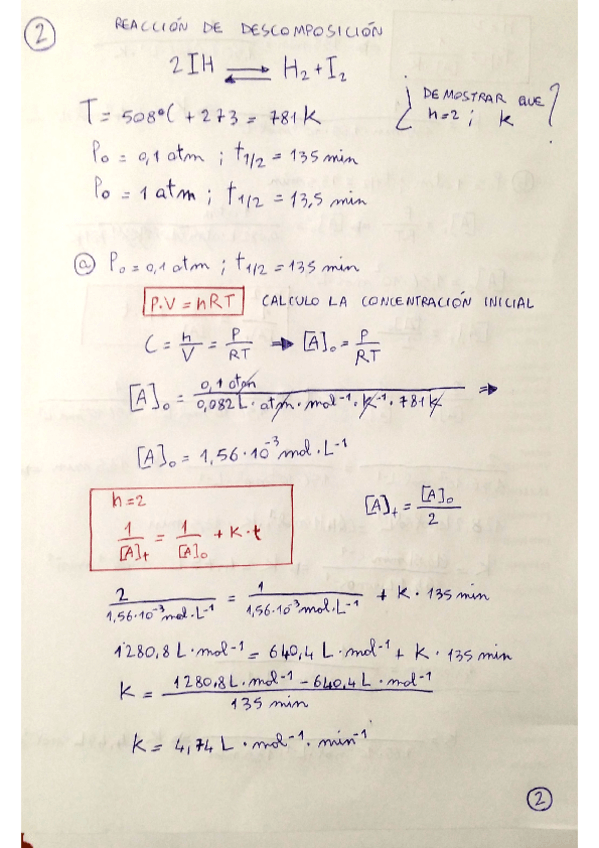 2
REACCIÓN DE DESCOMPOSICIÓN
2IH ⇌ H₂ + I₂
¿ DEMOSTRAR QUE
n=2 ; K ?
T = 508ºC + 273 = 781 K
P₀ = 0,1 atm ; t₁/₂ = 135 min
P₀ = 1 atm ; t₁/₂ = 13,5 min
ⓐ P₀ = 0,1 atm ; t₁/₂ = 135 min
P.V = nRT CALCULO LA CONCENTRACIÓN INICIAL
C = n/V = P/RT ⇒ [A]₀ = P/RT
[A]₀ = 0,1 atm / 0,082 L · atm · mol⁻¹ · K⁻¹ · 781 K ⇒
[A]₀ = 1,56 · 10⁻³ mol · L⁻¹
n=2
1/[A]t = 1/[A]₀ + K·t
[A]t = [A]₀/2
2 / 1,56·10⁻³ mol·L⁻¹ = 1 / 1,56·10⁻³ mol·L⁻¹ + K · 135 min
1280,8 L · mol⁻¹ = 640,4 L · mol⁻¹ + K · 135 min
K = 1280,8 L · mol⁻¹ - 640,4 L · mol⁻¹ / 135 min
K = 4,74 L · mol⁻¹ · min⁻¹
2